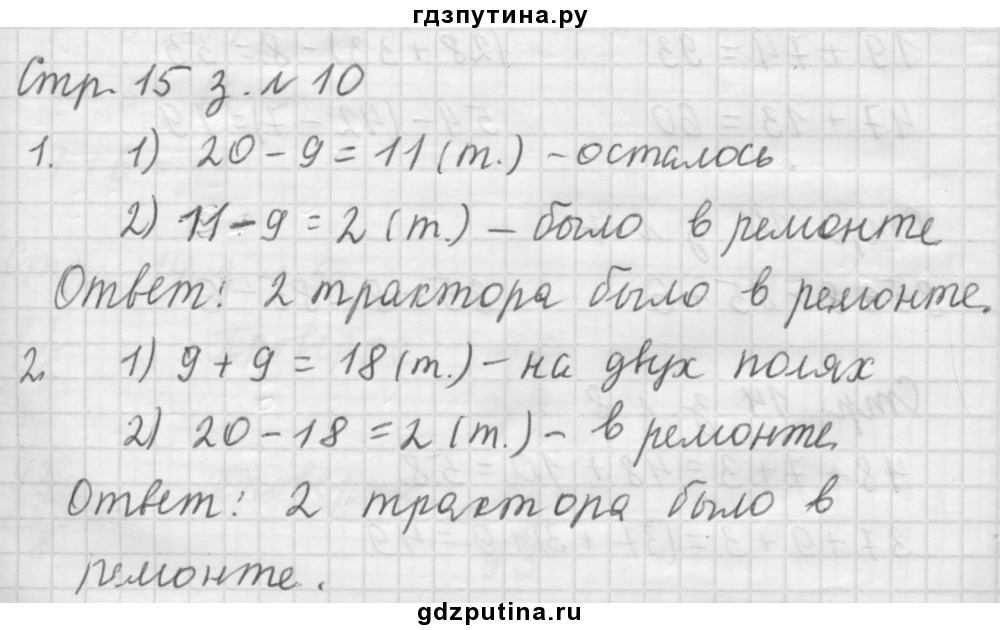 гдзпутина.ру
Стр. 15 з. № 10
1. 1) 20 - 9 = 11 (т.) - осталось
2) 11 - 9 = 2 (т.) - было в ремонте
Ответ: 2 трактора было в ремонте.
2. 1) 9 + 9 = 18 (т.) - на двух полях
2) 20 - 18 = 2 (т.) - в ремонте.
Ответ: 2 трактора было в
ремонте.
gdzputina.ru